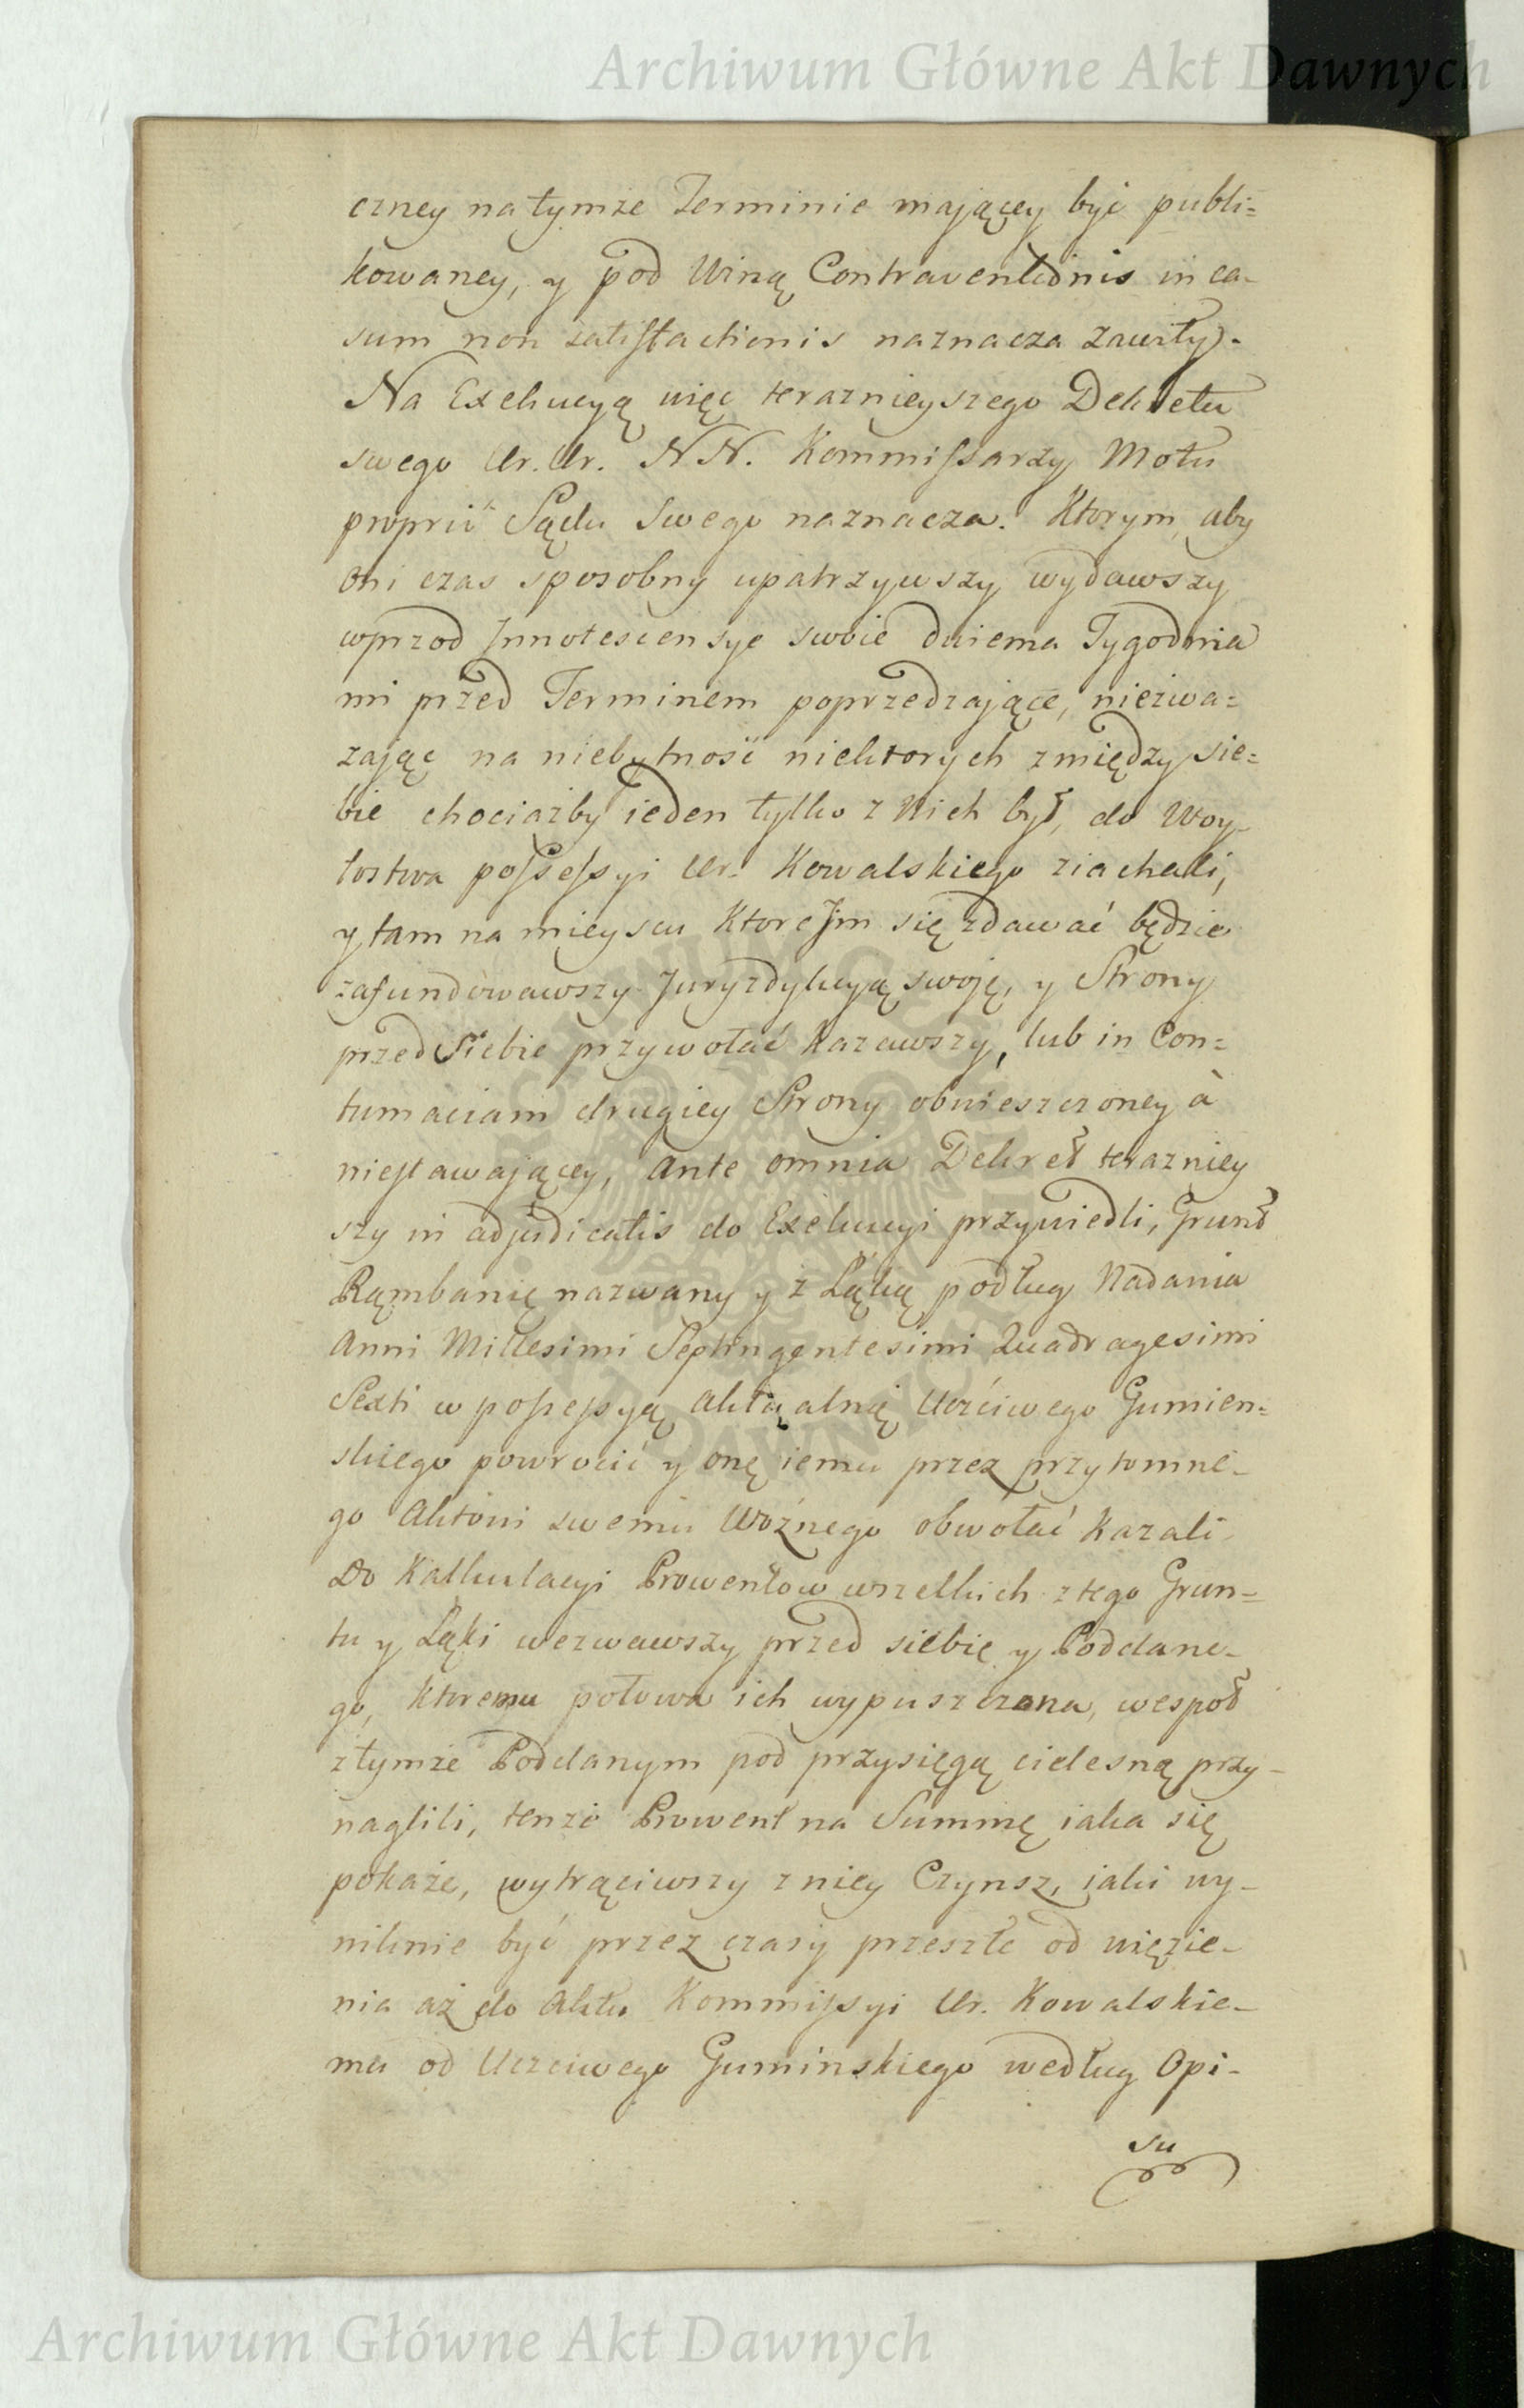 Archiwum Główne Akt Dawnych
czney na tymże Terminie mającey być publi=
kowaney, y pod Winą Contraventionis in ca-
sum non satisfactionis naznacza zawity).
Na Exekucyą więc teraznieyszego Dekretu
swego Ur. Ur. NN. Kommissarzy Motu
proprii Sądu swego naznacza. Ktorym, aby
oni czas sposobny upatrzywszy wydawszy
wprzod Innotescensye swoie dwiema Tygodnia
mi przed Terminem poprzedzające, niezwa=
zając na niebytność niektorych z między sie=
bie chociażby ieden tylko z Nich był, do Woy-
tostwa possessyi Ur. Kowalskiego ziachali,
y tam na mieyscu Ktore Jm się zdawać będzie
zafundowawszy Juryzdykcyą swoję, y Strony
przed Siebie przywołać kazawszy, lub in Con=
tumaciam drugiey Strony obwieszczoney à
niestawającey, ante omnia Dekret teraźniey
szy in adjudicatis do Exekucyi przywiedli, Grunt
Rąmbanię nazwany y z Łąką podług Nadania
Anni Millesimi Septingentesimi Quadragesimi
Sexti w possessyą aktualnię Uczciwego Gumien=
skiego powrocić y onę iemu przez przytomne-
go Aktowi swemu Woźnego obwołać kazali.
Do Kalkulacyi Prowentow wszelkich z tego Grun=
tu y Łąki wezwawszy przed siebie y Poddane-
go, ktoremu połowa ich wypuszczona, wespoł
z tymże Poddanym pod przysięgą cielesną przy-
naglili, tenże Prowent na Summę iaka się
pokaże, wytrąciwszy z niey Czynsz, iaki wy-
niknie być przez czasy przeszłe od więzie-
nia aż do Aktu Kommissyi Ur. Kowalskie-
mu od Uczciwego Guminskiego według Opi-
su
Archiwum Główne Akt Dawnych